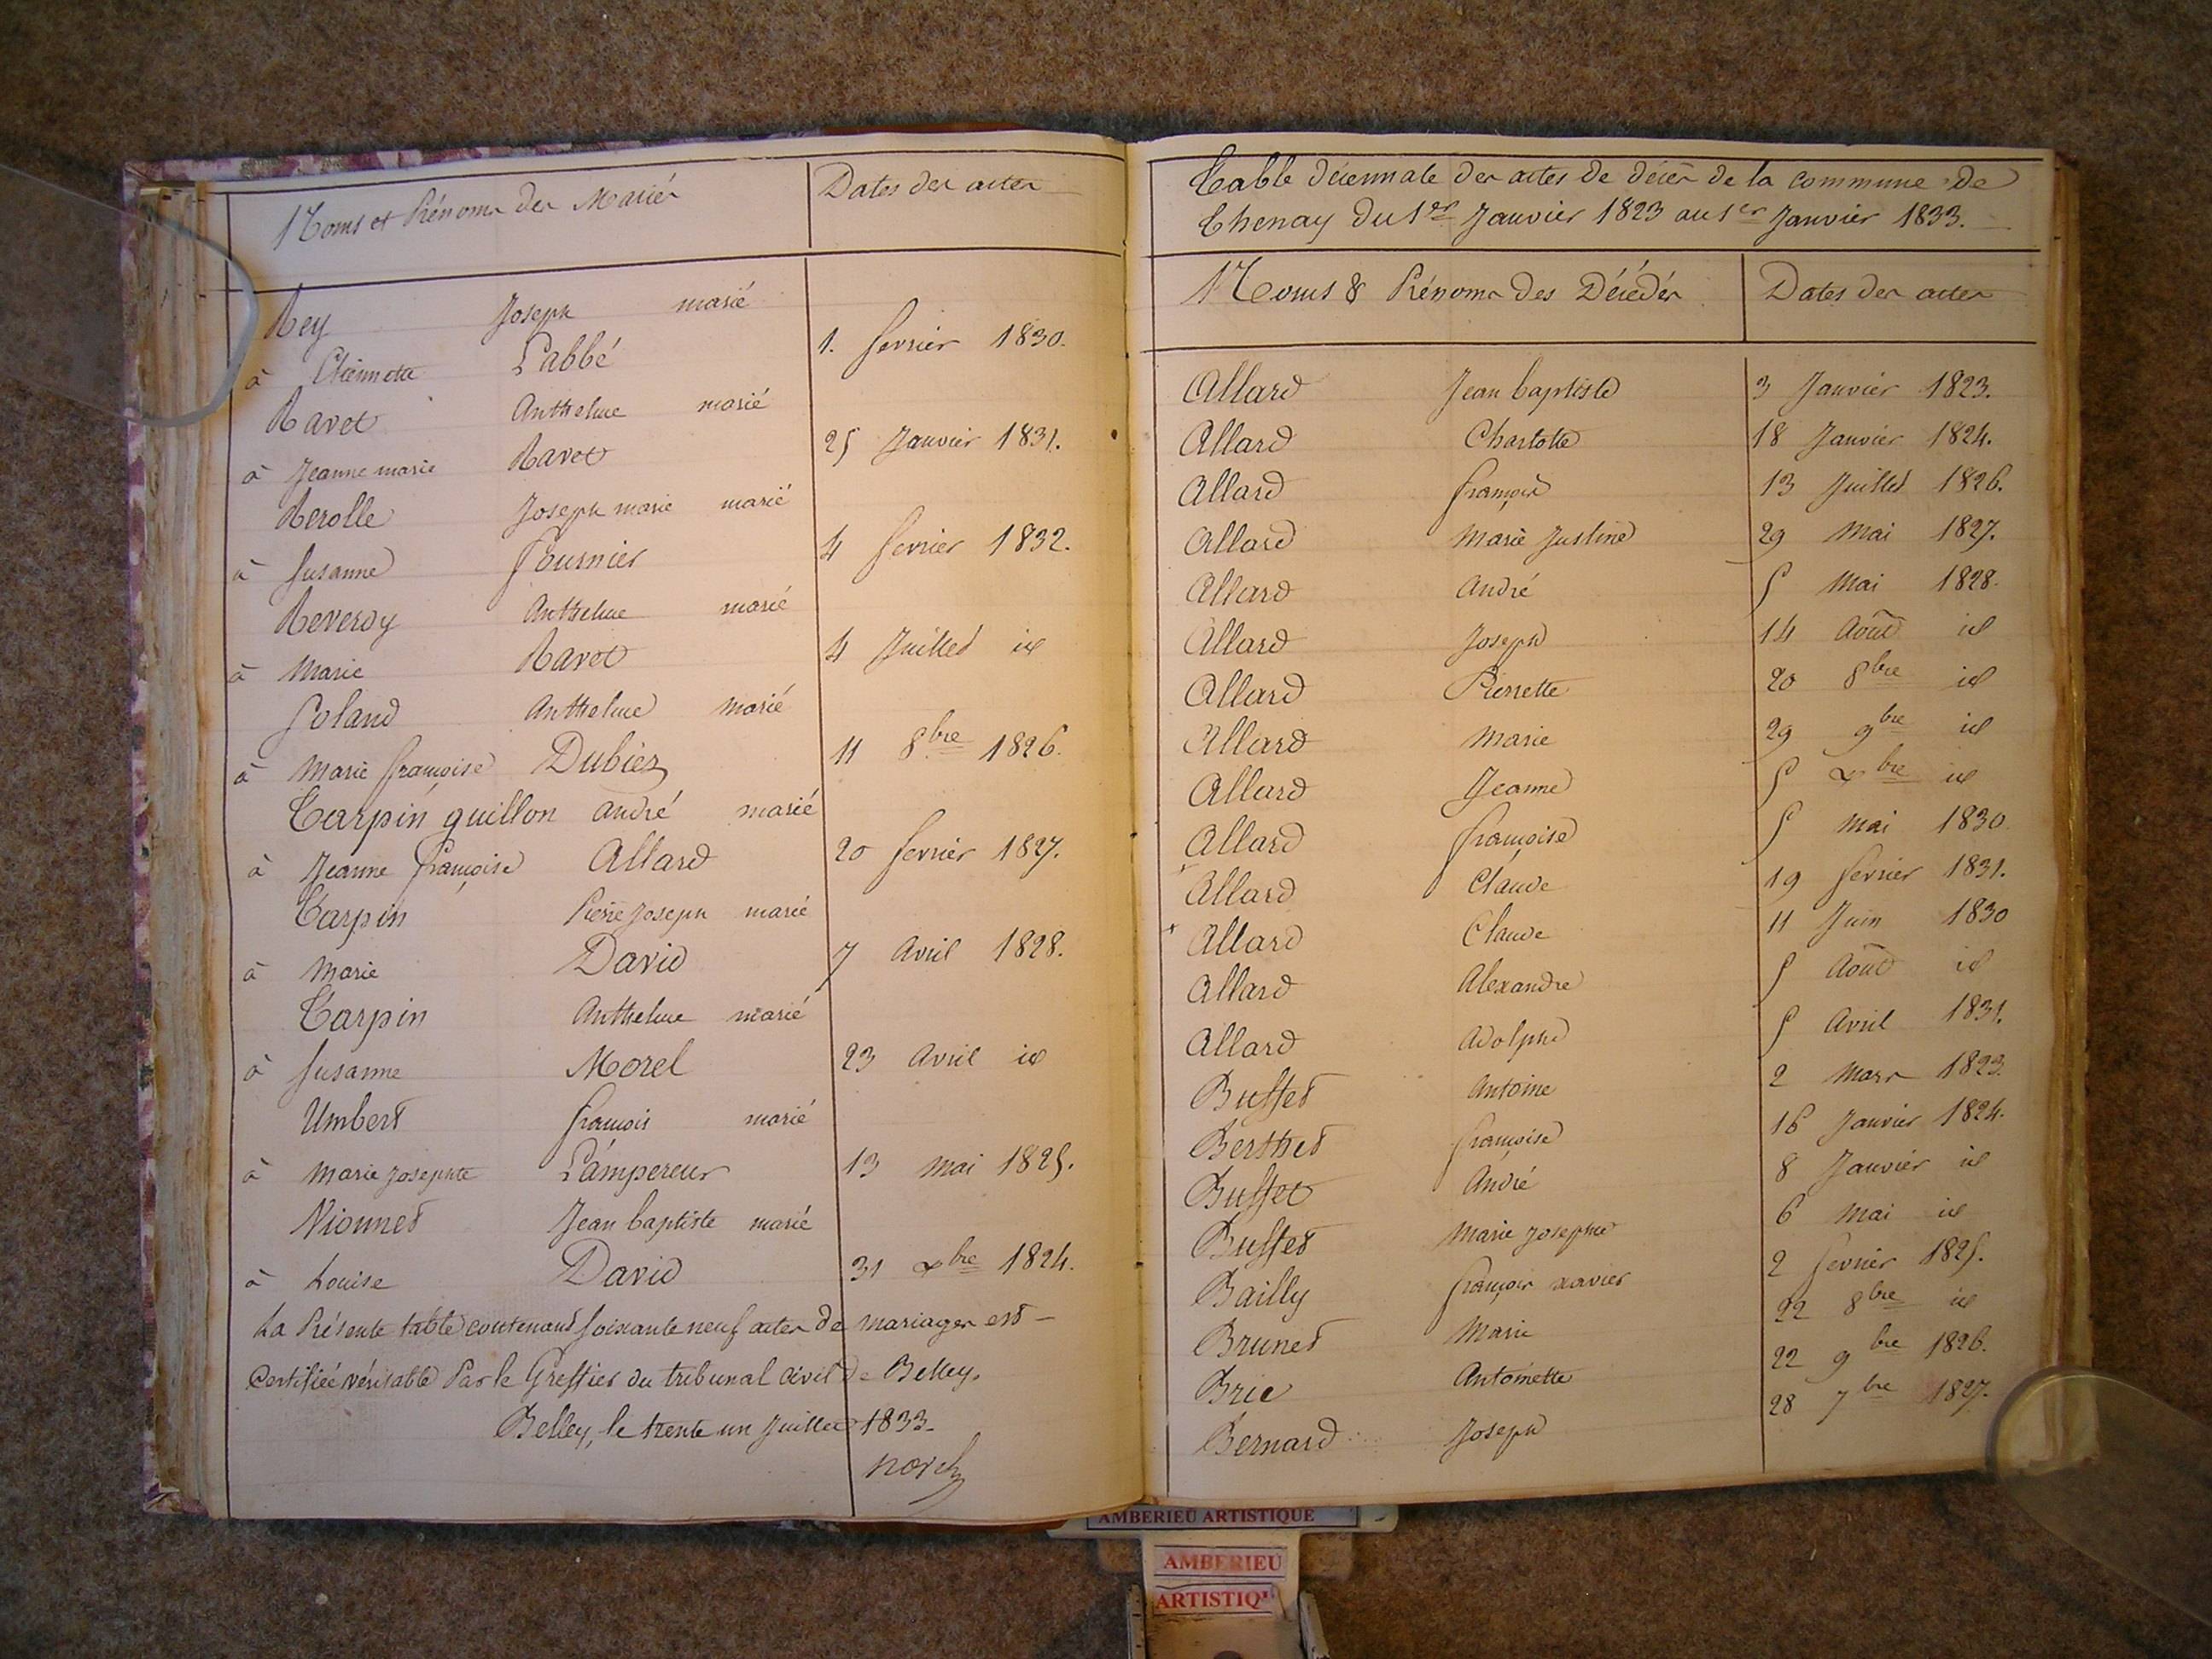 Noms et Prénoms des Mariés Dates des actes
Rey Joseph marié
à Etiennette Labbé 1. fevrier 1830.
Ravet Anthelme marié
à Jeanne marie Ravet 25 Janvier 1831.
Rerolle Joseph marie marié
à Susanne Fournier 4 fevrier 1832.
Reverdy Anthelme marié
à Marie Ravet 4 Juillet id
Soland Anthelme marié
à Marie françoise Dubiez 11 8.bre 1826.
Tarpin guillon andré marié
à Jeanne françoise Allard 20 fevrier 1827.
Tarpin Pierre Joseph marié
à Marie David 7 Avril 1828.
Tarpin Anthelme marié
à Susanne Morel 23 Avril id
Umbert françois marié
à Marie Josephte Lámpereur 13 Mai 1825.
Vionnet Jean baptiste marié
à Louise David 31 xbre 1824.
La Présente table contenant soixante neuf actes de mariages est –
Certifiée véritable Par le Greffier du tribunal civil de Belley.
Belley, le trente un Juillet 1833-
Table décennale des actes de décès de la commune de
Thenay du 1er Janvier 1823 au 1er Janvier 1833.
Noms & Prénoms des Décédés Dates des actes
Allard Jean baptiste 3 Janvier 1823.
Allard Charlotte 18 Janvier 1824.
Allard françois 13 Juillet 1826.
Allard Marie Justine 29 Mai 1827.
Allard André 5 Mai 1828.
Allard Joseph 14 Août id
Allard Pierrette 20 8bre id
Allard Marie 29 9bre id
Allard Jeanne 5 xbre id
Allard françoise 5 Mai 1830
Allard Claude 19 fevrier 1831.
Allard Claude 11 Juin 1830
Allard Alexandre 5 Août id
Allard Adolphe 5 Avril 1831.
Buffet Antoine 2 Mars 1823.
Berthet françoise 16 Janvier 1824.
Buffet André 8 Janvier id
Buffet Marie Josephte 6 Mai id
Bailly françois xavier 2 fevrier 1825.
Brunet Marie 22 8bre id
Brie Antoinette 22 9bre 1826.
Bernard Joseph 28 7bre 1827.
AMBERIEU ARTISTIQUE
AMBERIEU
ARTISTIQ